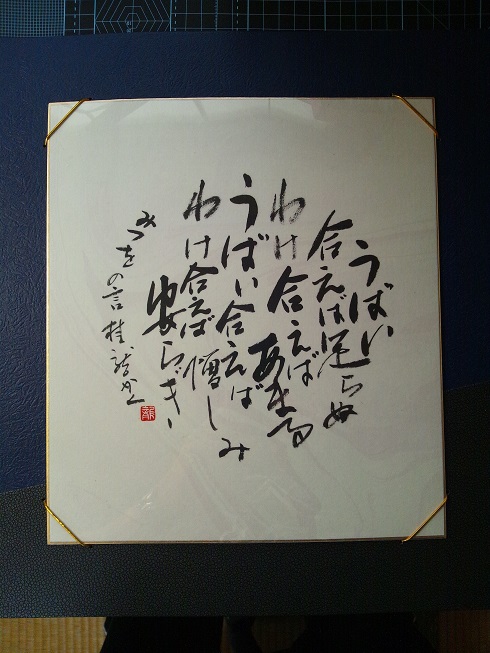 うばい
合えば足らぬ
わけ合えば
あまる
うばい合えば
憎しみ
わけ合えば
安らぎ
みつをの言 桂龍かく